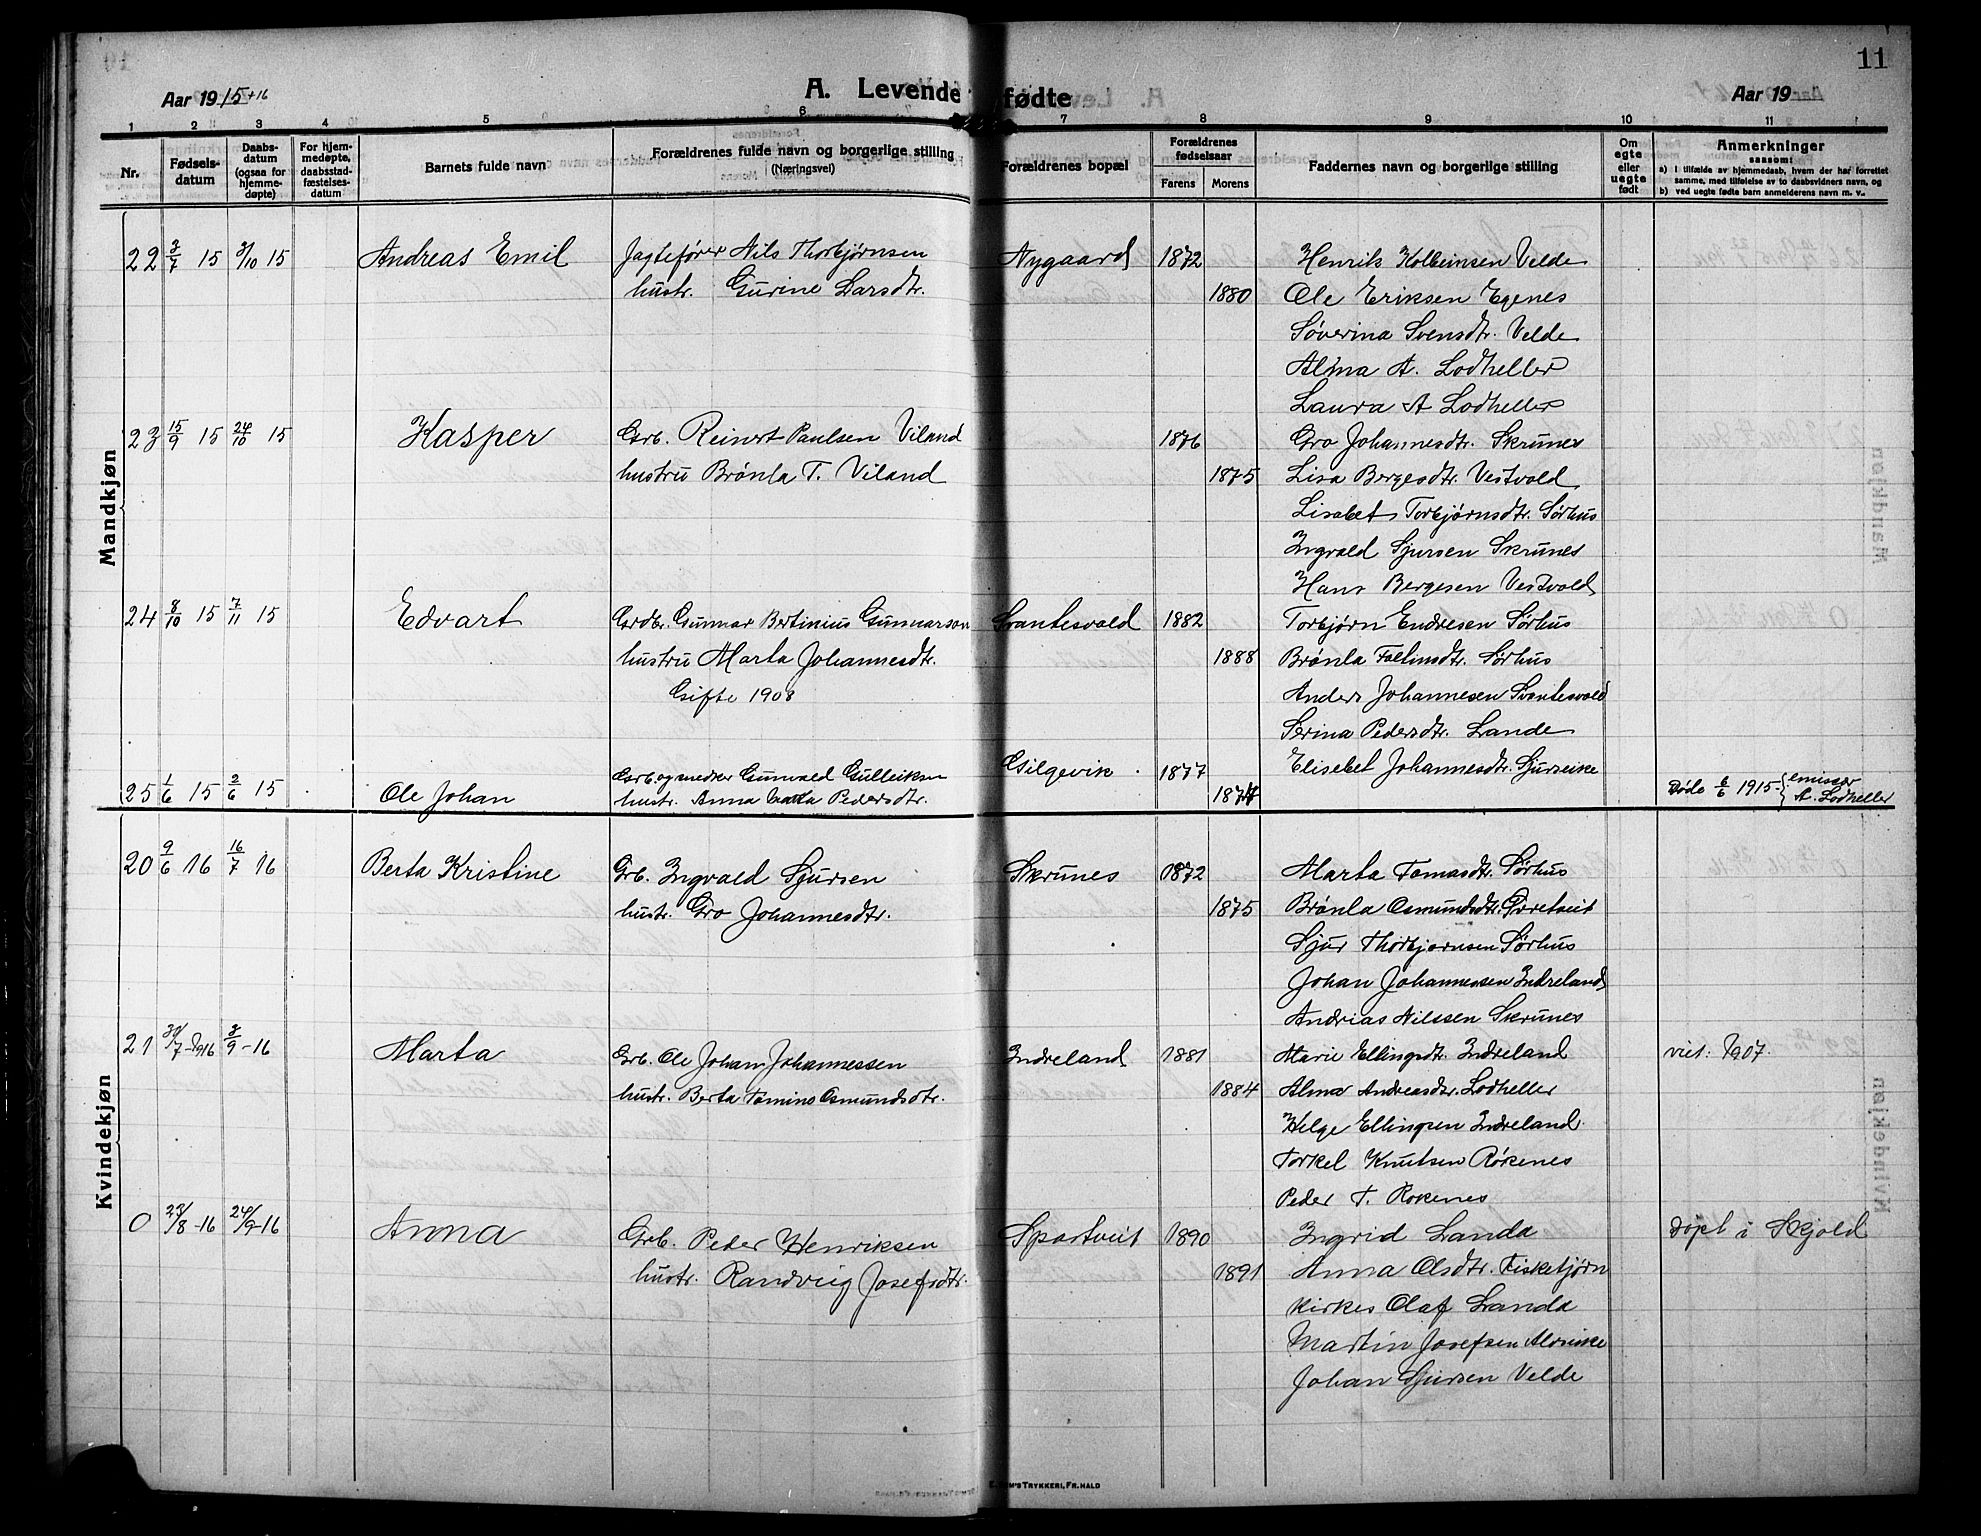 11
Aar 1915+16
A. Levende fødte
Aar 19
1 2 3 4 5 6 7 8 9 10 11
Nr.
Fødsels-datum
Daabs-datum (ogsaa for hjemme-døpte)
For hjem-medøpte, daabsstad-fæstelses-datum
Barnets fulde navn
Forældrenes fulde navn og borgerlige stilling
(Næringsvei)
Forældrenes bopæl
Forældrenes fødselsaar
Farens Morens
Faddernes navn og borgerlige stilling
Om egte eller uegte født
Anmerkninger
saasom:
a) I tilfælde av hjemmedaab, hvem der har forrettet samme, med tilføielse av to daabsvidners navn, og
b) ved uegte fødte barn anmelderens navn m. v.
Mandkjøn
22 3/7 15 3/10 15 Andreas Emil Jagtefører Nils Thorbjørnsen Nygaard 1872 Henrik Kolbeinsen Velde
hustr. Gurine Larsdtr. 1880 Ole Eriksen Egenes
Søverina Svensdtr. Velde
Alma A. Lodheller
Laura A Lodheller
23 15/9 15 24/10 15 Kasper Grb. Reinert Paulsen Viland 1876 Gro Johannesdtr. Skrunes
hustru Brønla T. Viland 1875 Lisa Bergesdtr. Vestvold
Lisabet Torbjørnsdtr. Sørhus
Ingvald Sjursen Skrunes
Hans Bergesen Vestvold
24 8/10 15 7/11 15 Edvart Grdbr. Gunnar Bertinius Gunnarson Svantesvold 1882 Torbjørn Endresen Sørhus
hustru Marta Johannesdtr. 1888 Brønla Faltinsdtr. Sørhus
Gifte 1908 Anders Johannesen Svantesvold
Serina Pedersdtr. Lande
25 1/6 15 2/6 15 Ole Johan Grb. og smed Gunvald Gulleiksen Gilgevik 1877 Elisebet Johannesdtr. Sjurseike
hustr. Anna Pedersdtr. 1874 Døde 6/6 1915 - {emissær A. Lodheller
Kvindekjøn
20 9/6 16 16/7 16 Berta Kristine Grb. Ingvald Sjursen Skrunes 1872 Marta Tomasdtr. Sørhus
hustr. Gro Johannesdtr. 1875 Brønla Osmundsdtr. Øvretveit
Sjur Thorbjørnsen Sørhus
Johan Johannessen Indreland
Andrias Nilssen Skrunes
21 30/7-1916 3/9-16 Marta Grb. Ole Johan Johannessen Indreland 1881 Marie Ellingsdtr. Indreland viet: 1907.
hustr. Berta Tomine Osmundsdtr. 1884 Alma Andreasdtr. Lodheller
Helge Ellingsen Indreland
Torkel Knutsen Røkenes
Peder T. Rokenes
0 23/8-16 24/9-16 Anna Grb. Peder Henriksen Spartveit 1890 Ingrid Landa Døpt i Skjold
hustr. Randveig Josefsdtr. 1891 Anna Olsdtr. Fisketjørn
Kirkes Olaf Landa
Martin Josefsen Alvseike
Johan Sjursen Velde
TRYKKERI, FR.HALD